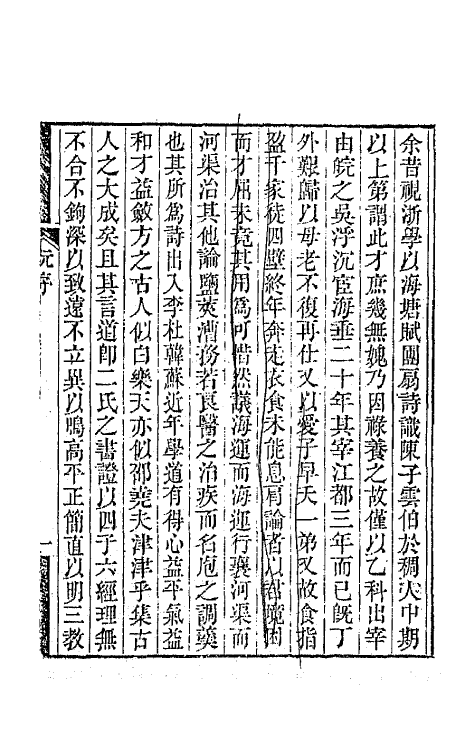 余昔視浙學以海塘賦團扇詩識陳子雲伯於稠人中期
以上第謂此才庶幾無媿乃因祿養之故僅以乙科出宰
由皖之吳浮沉宦海垂二十年其宰江都三年而已旣丁
外艱歸以母老不復再仕又以愛子早夭一弟又故食指
盈千家徒四壁終年奔走衣食未能息肩論者以
而才屈未竟其用爲可惜然議海運而海運行襄河渠而
河渠治其他論鹽莢漕務若良醫之治疾而名庖之調羹
也其所爲詩出入李杜韓蘇近年學道有得心益平氣益
和才益斂方之古人似白樂天亦似邵堯夫津津乎集古
人之大成矣且其言道卽二氏之書證以四子六經理無
不合不鉤深以致遠不立異以鳴高平正簡直以明三教
阮序
一